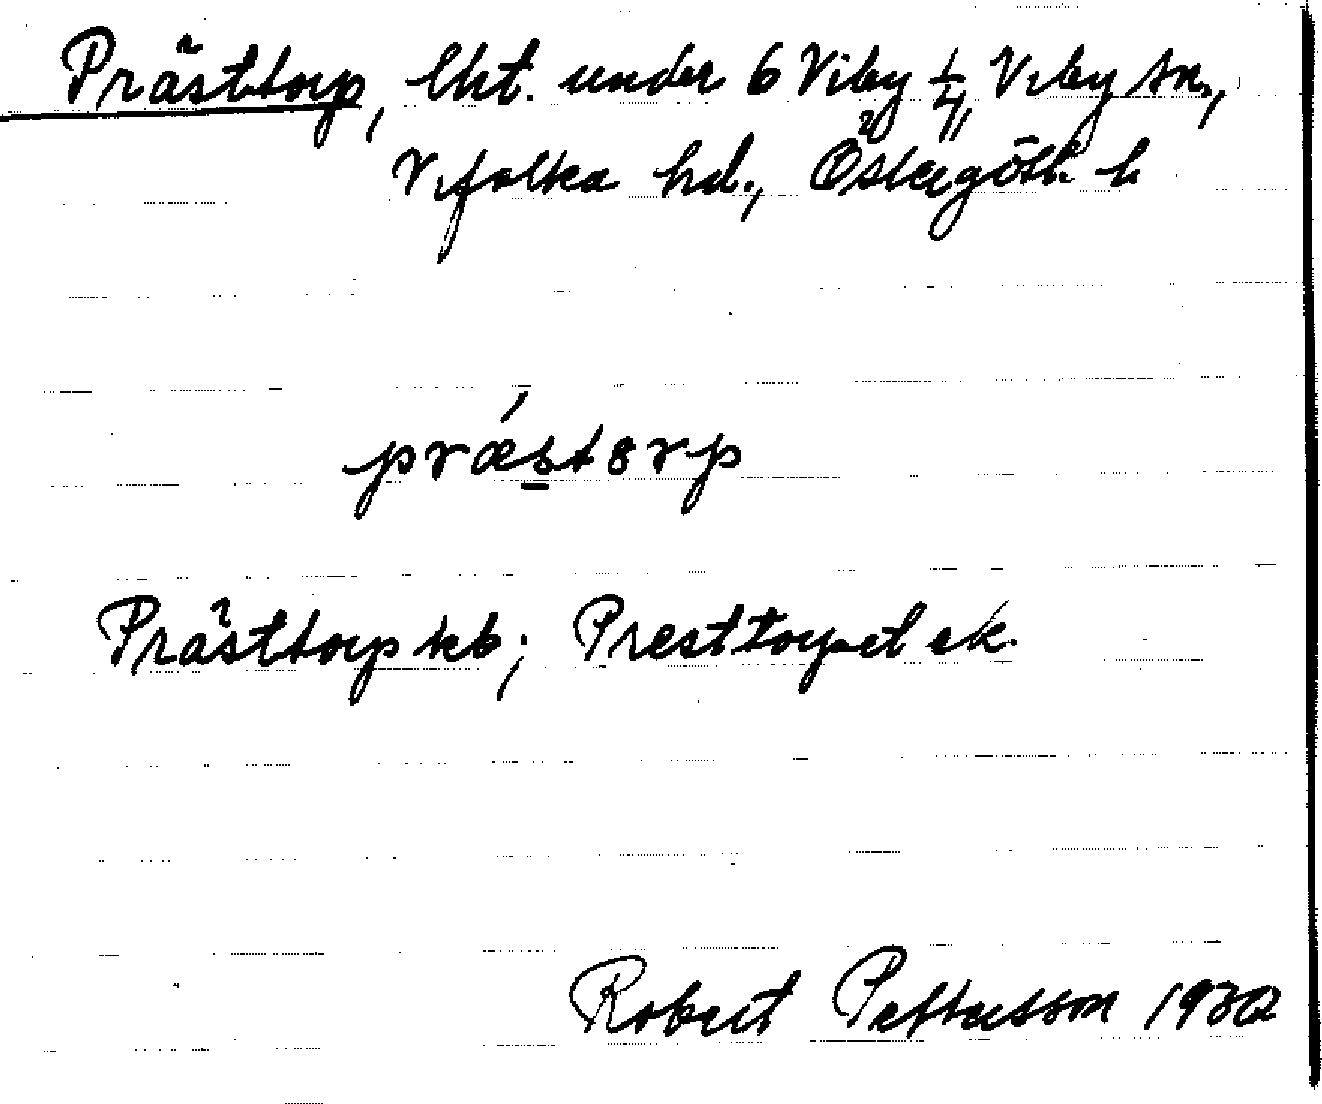 Prästtorp, lht. under 6 Viby 1/4, Viby sn.,
Vifolka hd., Östergötl. l.
præ´s̲tȣrp
Prästtorp kb; Presttorpet ek.
Robert Pettersson 1930